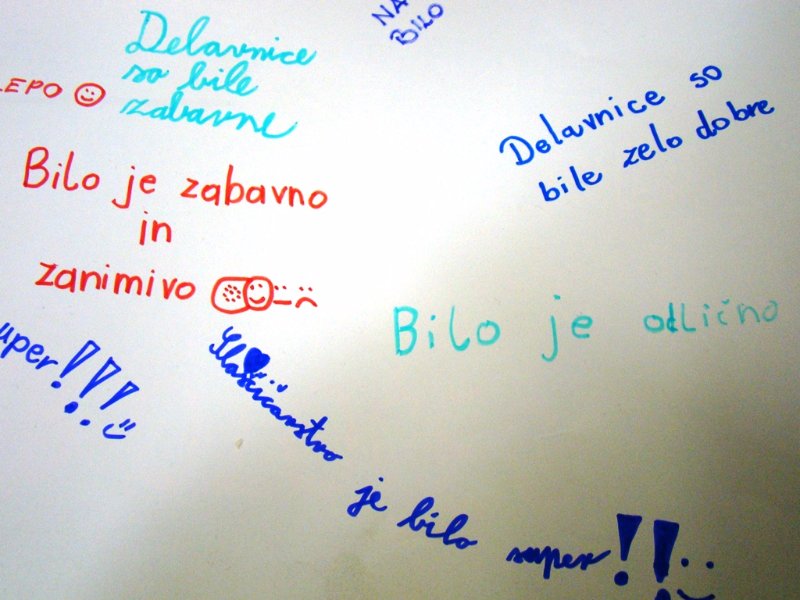 NA
BILO
Delavnice
so bile
zabavne
LEPO
Delavnice so
bile zelo dobre
Bilo je zabavno
in
zanimivo
Bilo je odlično
uper!!!
Slaščičarstvo je bilo super!!